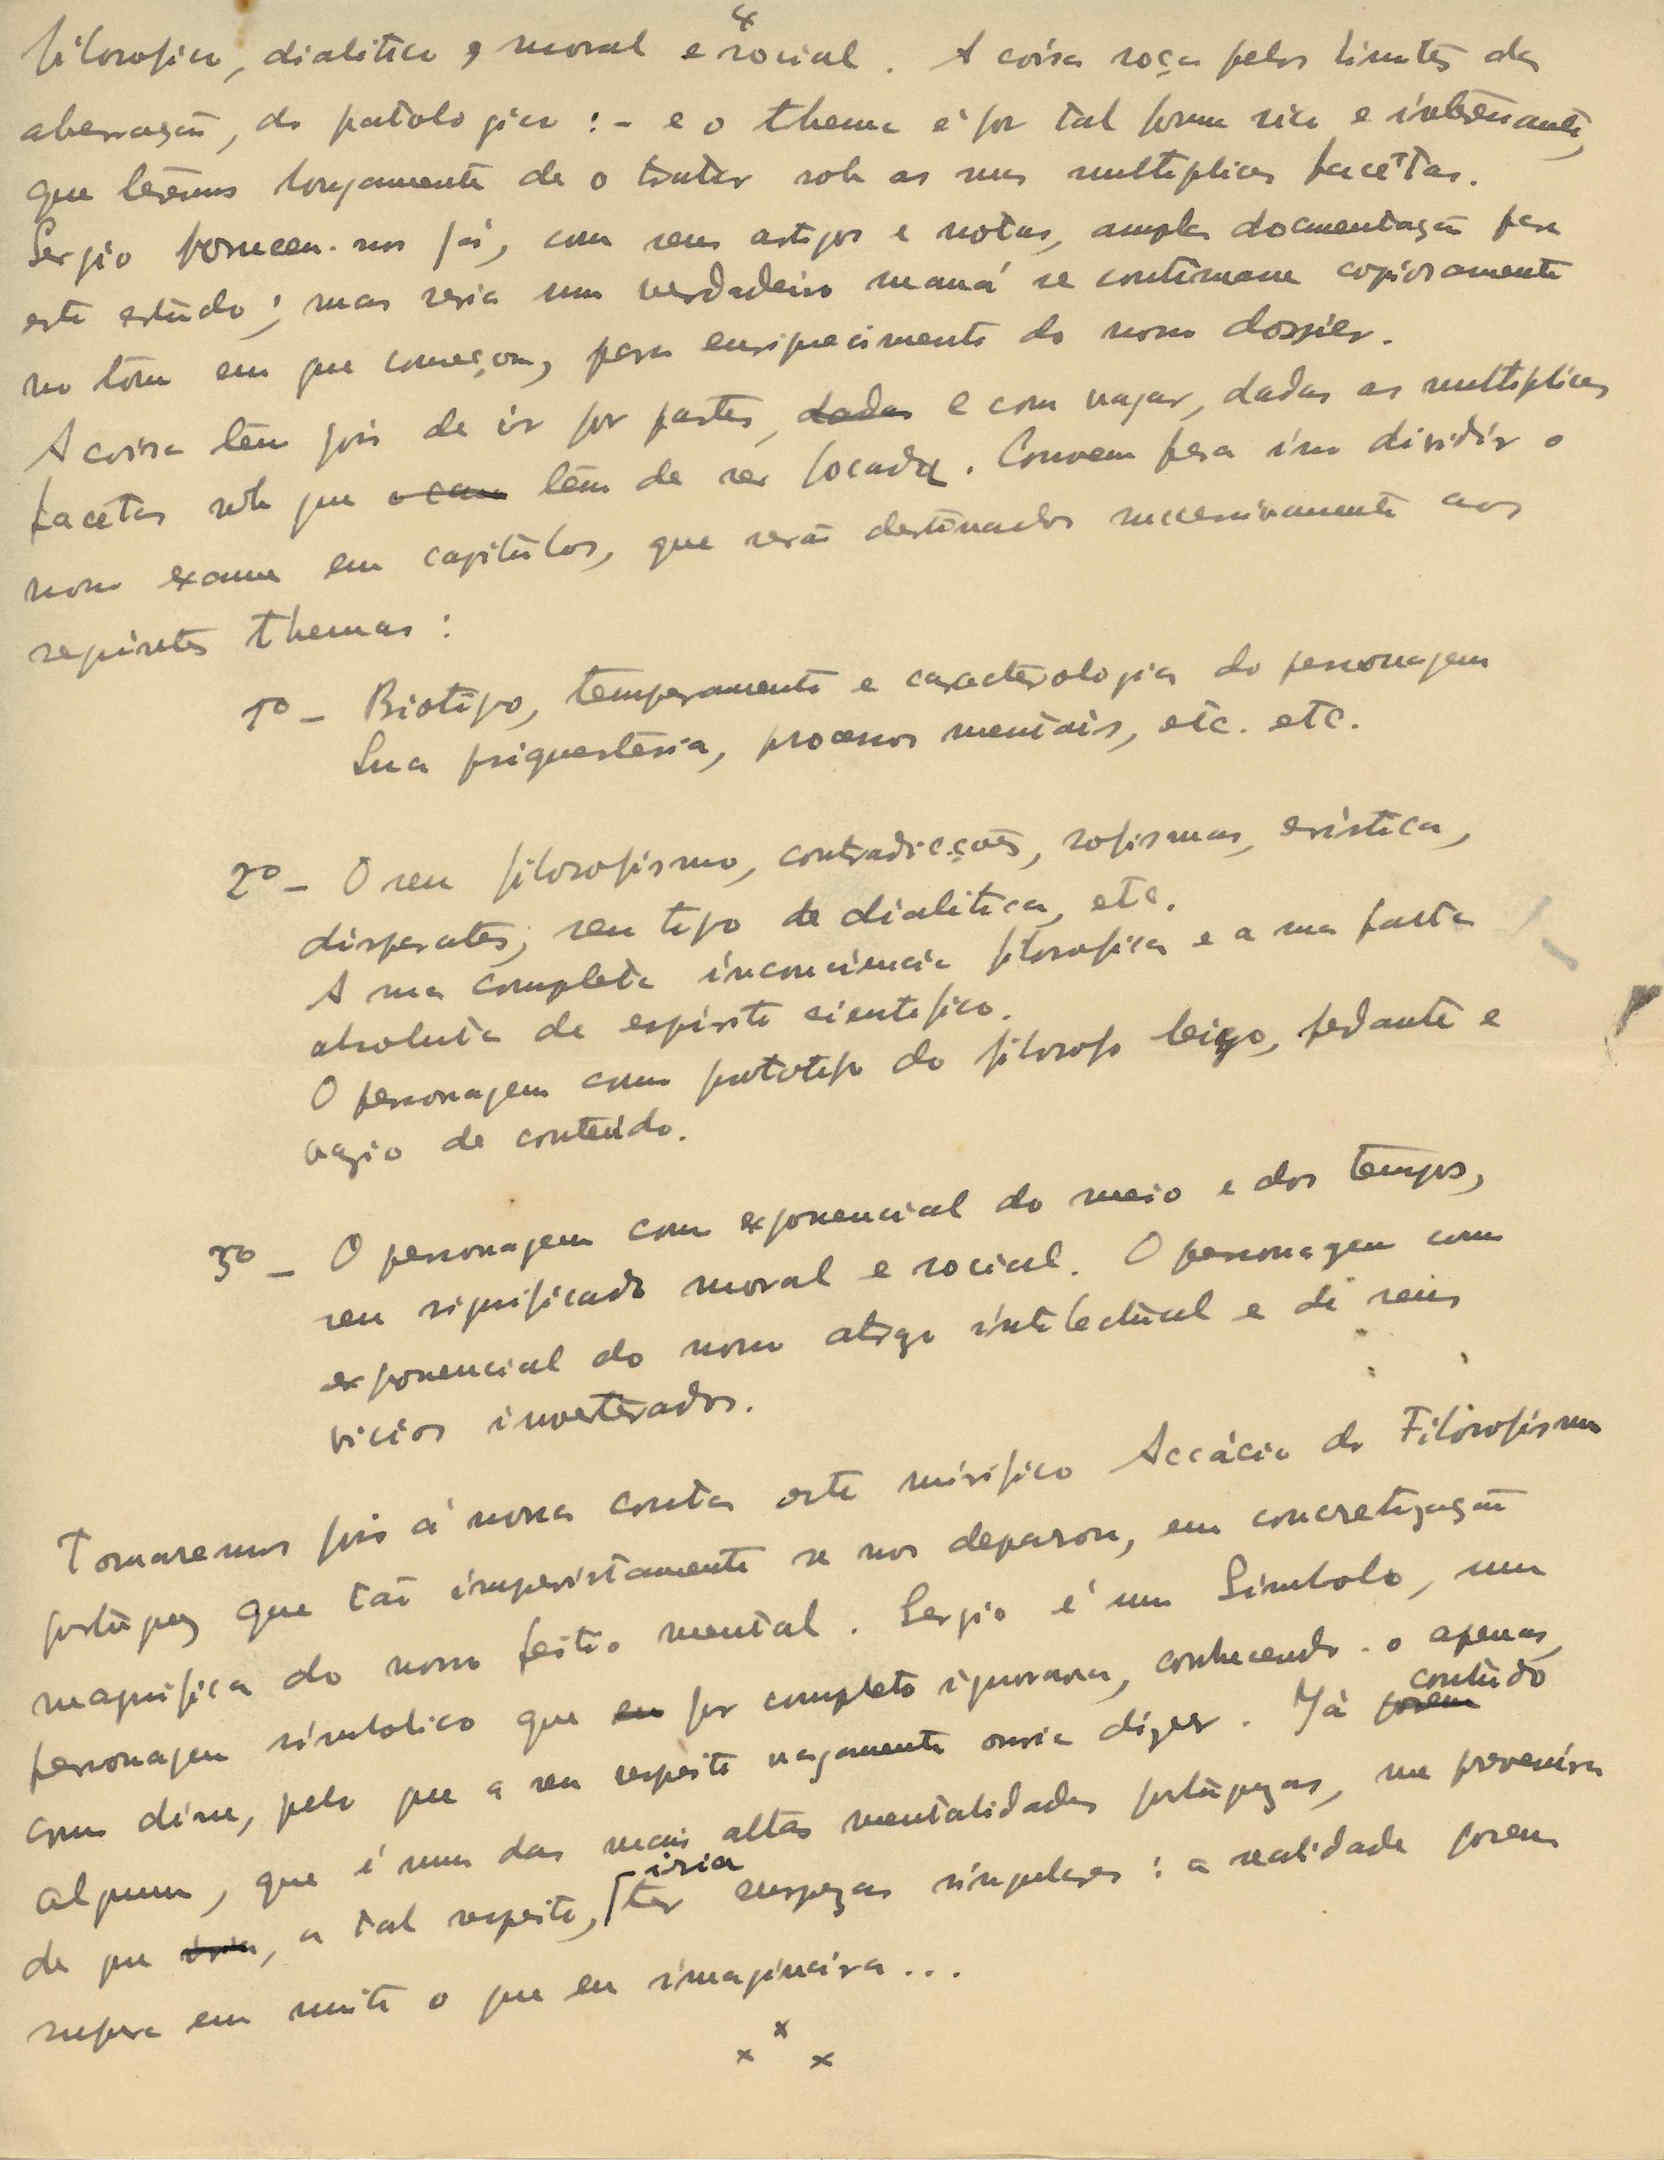 4
filosofica, dialitica, moral e social. A coisa roça pelos limites da
aberração, do patologico :- e o thema é por tal forma rico e interessante,
que terêmos longamente de o tratar sob as suas multiplices facêtas.
Sergio forneceu-nos já, com seus artigos e notas, ampla documentação para
este estúdo; mas seria um verdadeiro maná se continuasse copiosamente
no tom em que começou, para enriquecimento do nosso dossier.
A coisa têm pois de ir por partes, dadas e com vagar, dadas as multiplices
facetas sob que têm de ser focada. Convem para isso dividir o
nosso exame em capitúlos, que serão destinados sucessivamente aos
seguintes themas:
1º - Biotipo, temperamento e caracterologia do personagem
Sua psiquesteria, processos mentais, etc. etc.
2º - O seu filosofismo, contradicções, sofismas, eristica,
disparates, seu tipo de dialitica, etc.
A sua completa inconciencia filosofica e a sua falta
absoluta de espirito cientifico.
O personagem como prototipo do filosofo leigo, pedante e
vazio de conteúdo.
3º - O personagem como exponencial do meio e dos tempos,
seu significado moral e social. O personagem como
exponencial do nosso atrazo intelectúal e di seus
vicios inveterados.
Tomaremos pois á nossa conta este mirifico Accácio do Filosofismo
portúguez que tão imprevistamente se nos deparou, em concretização
magnifica do nosso feitio mental. Sergio é um Simbolo, um
personagem simbolico que eu por completo ignorava, conhecendo-o apenas,
como disse, pelo que a seu respeito vagamente ouvia dizer. Já porem contúdo
alguem, que é uma das mais altas mentalidades portúguezas, me prevenira
de que iria, a tal respeito, iria ter surprezas singulares: a realidade porem
supera em muito o que eu imaginára...
x x x